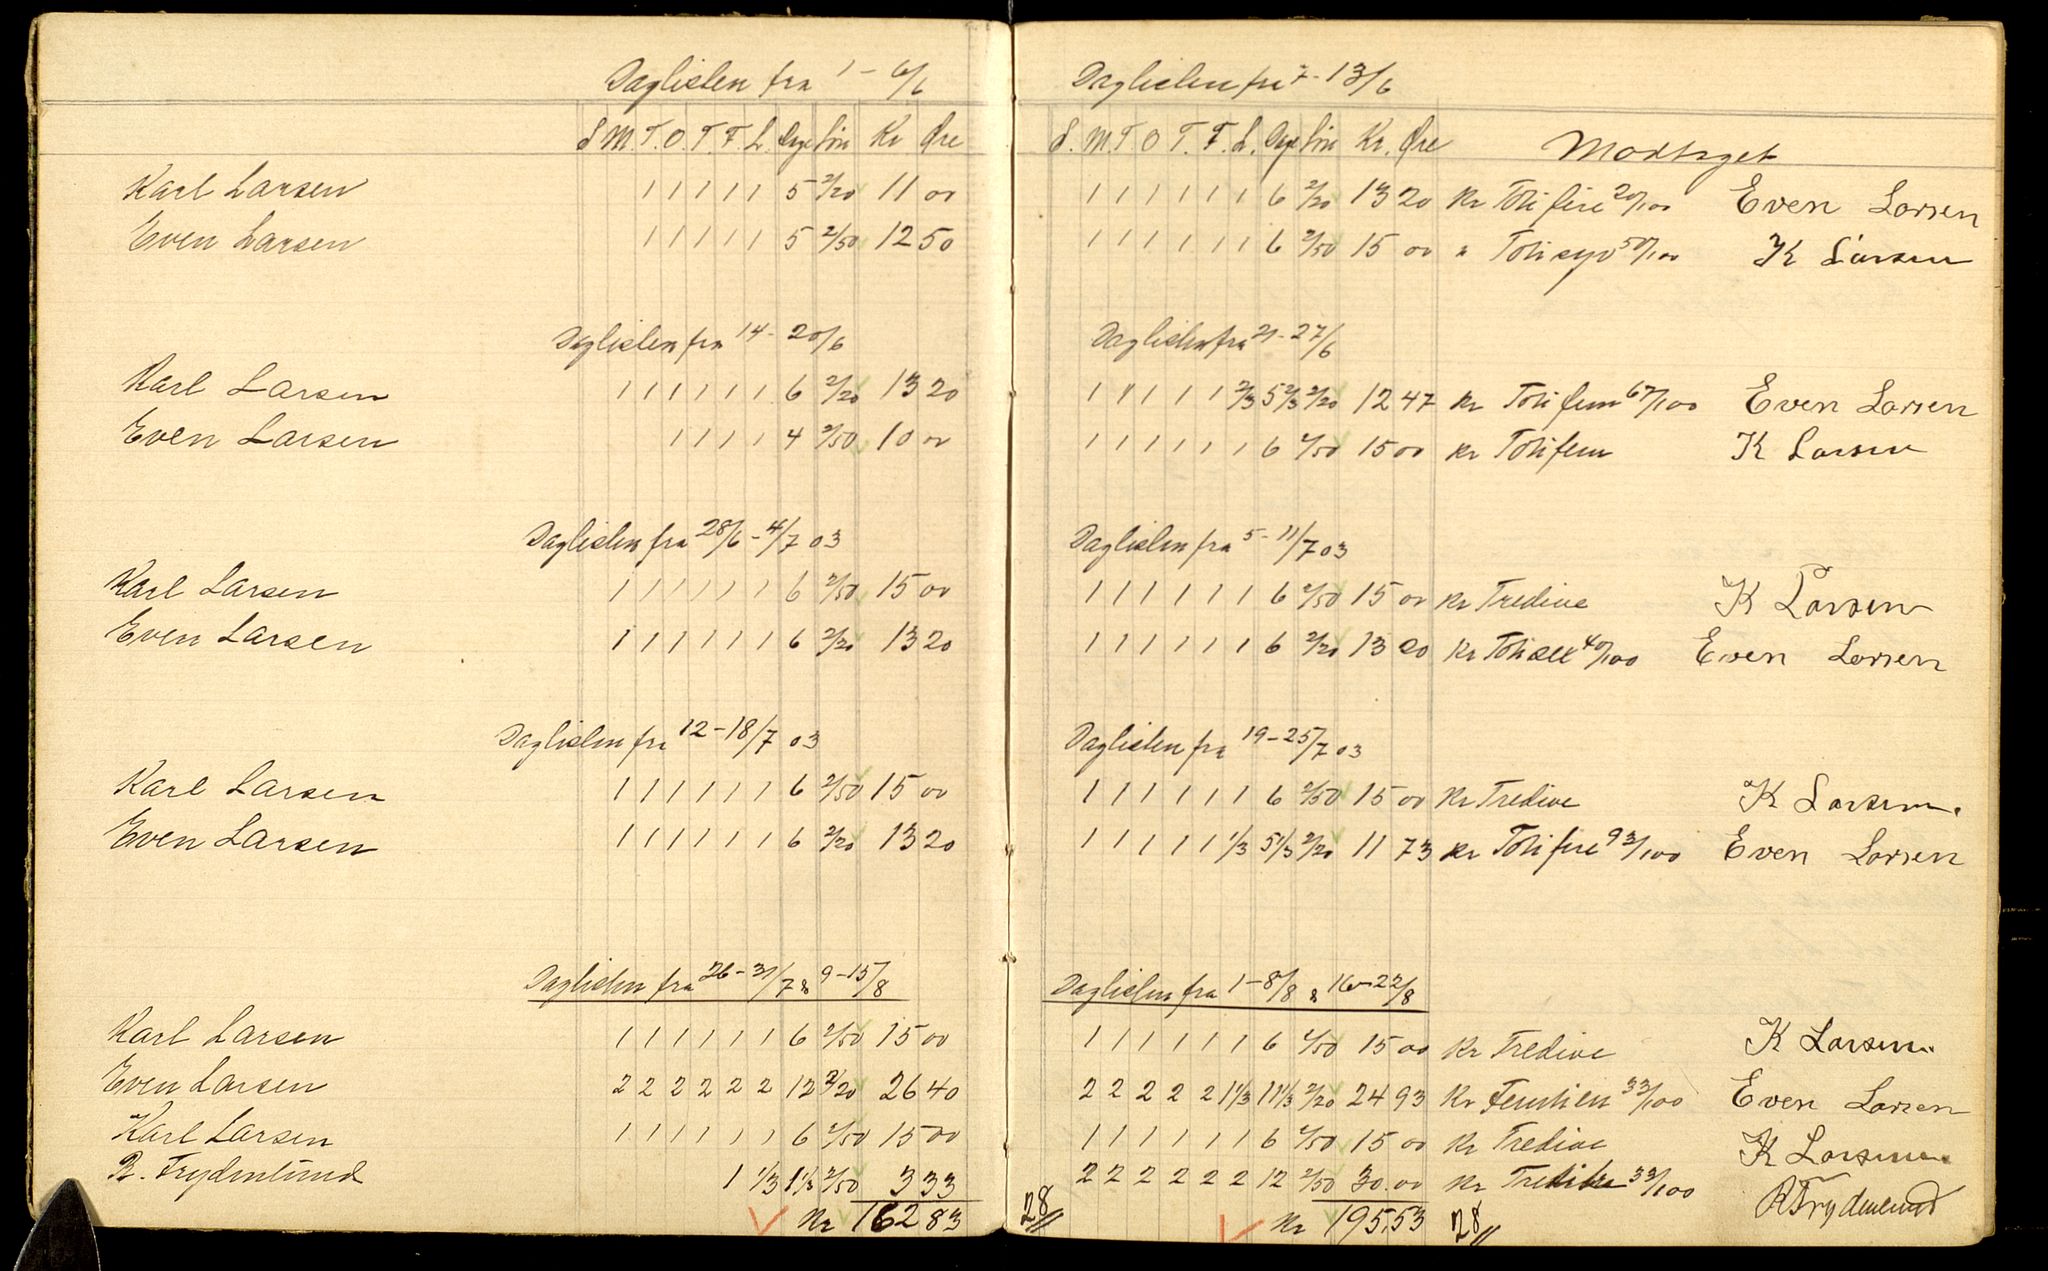 Daglisten fra 1 - 6/6
S M. T. O. T. F. L. Dage Løn Kr Øre
Karl Larsen 1 1 1 1 1 5 2/20 11 00
Even Larsen 1 1 1 1 1 5 2/50 12 50
Daglisten fra 14 - 20/6
Karl Larsen 1 1 1 1 1 1 6 2/20 13 20
Even Larsen 1 1 1 1 4 2/50 10 00
Daglisten fra 28/6 - 4/7 03
Karl Larsen 1 1 1 1 1 1 6 2/50 15 00
Even Larsen 1 1 1 1 1 1 6 2/20 13 20
Daglisten fra 12 - 18/7 03
Karl Larsen 1 1 1 1 1 1 6 2/50 15 00
Even Larsen 1 1 1 1 1 1 6 2/20 13 20
Daglisten fra 26 - 31/7 & 9 - 15/8
Karl Larsen 1 1 1 1 1 1 6 2/50 15 00
Even Larsen 2 2 2 2 2 2 12 2/20 26 40
Karl Larsen 1 1 1 1 1 1 6 2/50 15 00
R. Frydenlund 1 1/3 1 1/3 2/50 3 33
Kr 162 83 28
Daglisten fra 7 - 13/6
S. M. T O T. F. L. Dage Løn Kr. Øre Modtaget
1 1 1 1 1 1 6 2/20 13 20 Kr Toti fire 20/100 Even Larsen
1 1 1 1 1 1 6 2/50 15 00 " Toti syv 50/100 K Larsen
Daglisten fra 21 - 27/6
1 1 1 1 1 2/3 5 2/3 2/20 12 47 Kr Toti fem 67/100 Even Larsen
1 1 1 1 1 1 6 2/50 15 00 Kr Toti fem K Larsen
Daglisten fra 5 - 11/7 03
1 1 1 1 1 1 6 2/50 15 00 Kr Tredive K Larsen
1 1 1 1 1 1 6 2/20 13 20 Kr Toti sex 40/100 Even Larsen
Daglisten fra 19 - 25/7 03
1 1 1 1 1 1 6 2/50 15 00 Kr Tredive K Larsen.
1 1 1 1 1 1/3 5 1/3 2/20 11 73 Kr Toti fire 93/100 Even Larsen
Daglisten fra 1 - 8/8 & 16 - 22/8
1 1 1 1 1 1 6 2/50 15 00 Kr Tredive K Larsen.
2 2 2 2 2 1 1/3 11 1/3 2/20 24 93 Kr Femtien 33/100 Even Larsen
1 1 1 1 1 1 6 2/50 15 00 Kr Tredive K Larsen.
2 2 2 2 2 2 12 2/50 30.00 Kr Treditre 33/100 R Frydenlund
Kr 195.53 28